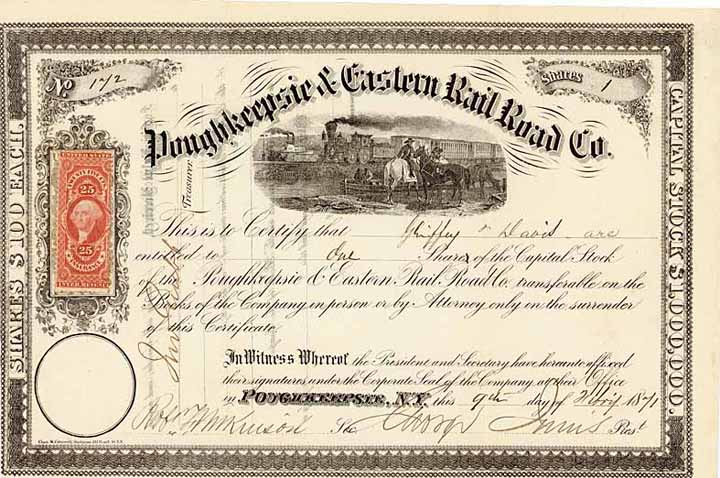 No 172
Shares 1
Poughkeepsie & Eastern Rail Road Co.
SHARES $100 EACH.
CAPITAL STOCK $1,000,000.
UNITED STATES
25
25
INTER. REVENUE
Treasurer
This is to Certify that Griffey & Davis are
entitled to One Shares of the Capital Stock
of the Poughkeepsie & Eastern Rail Road Co, transferable on the
Books of the Company in person or by Attorney only on the surrender
of this Certificate.
In Witness Whereof the President and Secretary have hereunto affixed
their signatures under the Corporate Seal of the Company at their Office
in POUGHKEEPSIE, N.Y. this 9th day of 1871
Wilkinson Sec George Innis Prest